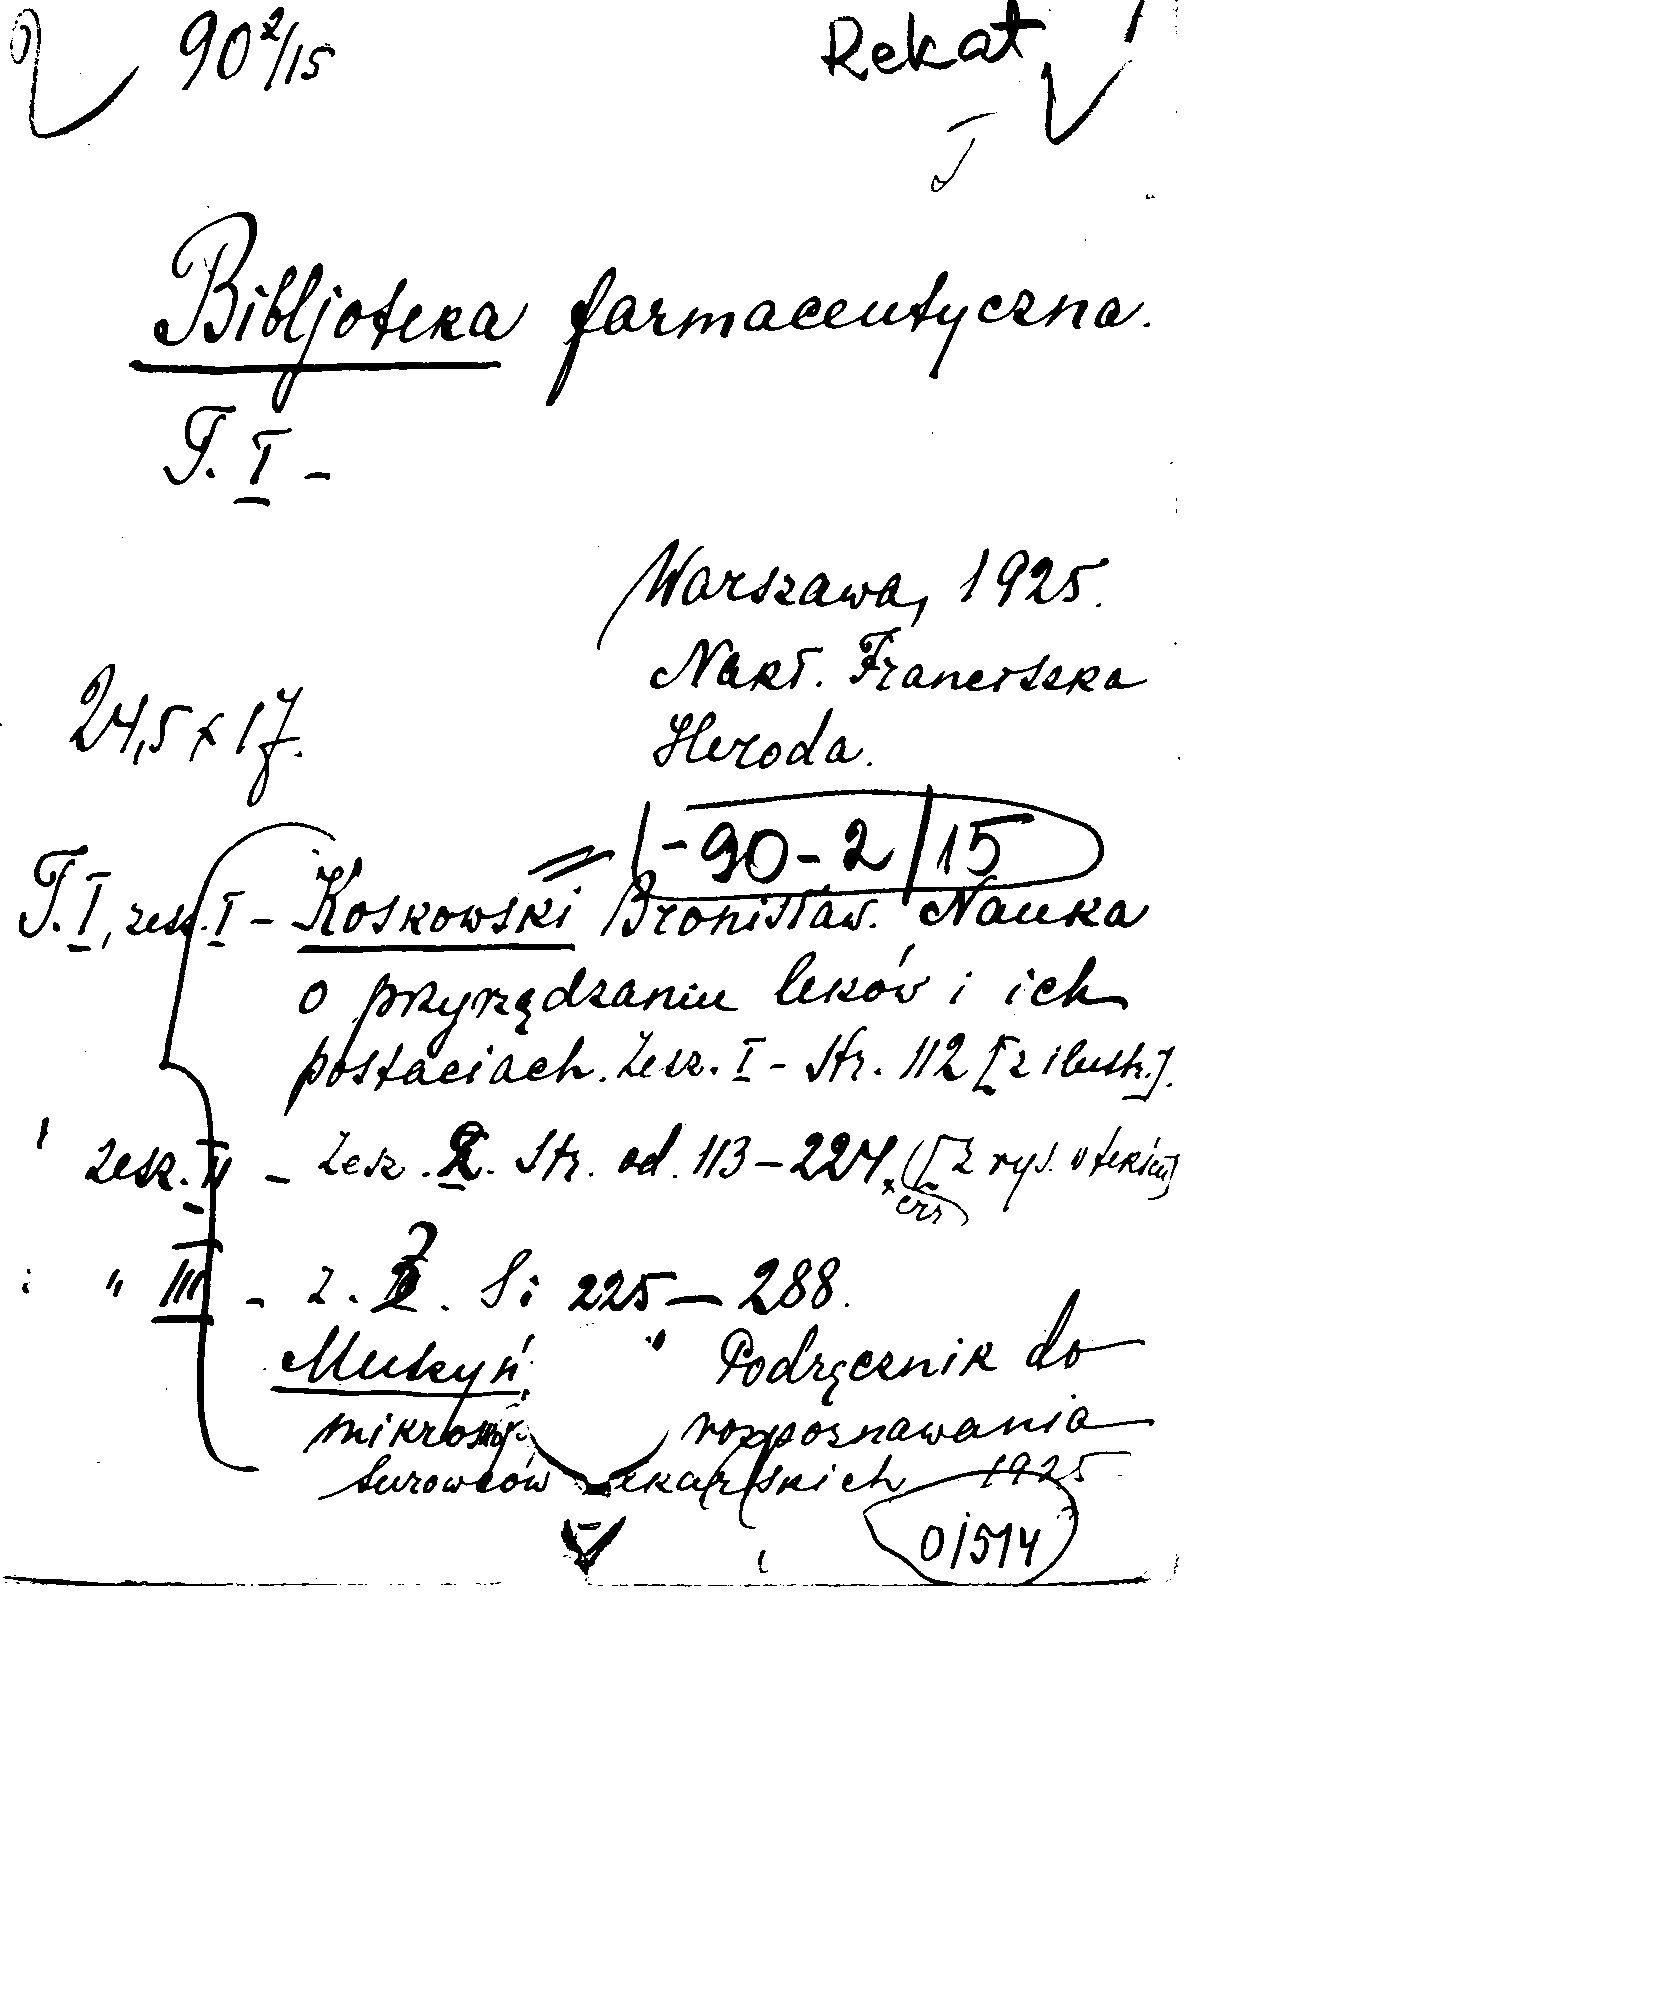 90 2/15 Rekat
Bibljoteka farmaceutyczna.
T. I -
Warszawa, 1925.
Nakł. Franciszka
24,5 x 17.
Heroda.
-90-2/15
T. I, zesz. I - Koskowski Bronisław. Nauka
o przyrządzaniu leków i ich
postaciach. Zesz. I - Str. 112 [z ilustr.].
zesz. II - Zesz. 2. Str. od 113-224. [z rys. w tekście]
" III - z. 3. S: 225-288.
Muszyń " Podręcznik do
rozpoznawania
surowców lekarskich 1925
01514